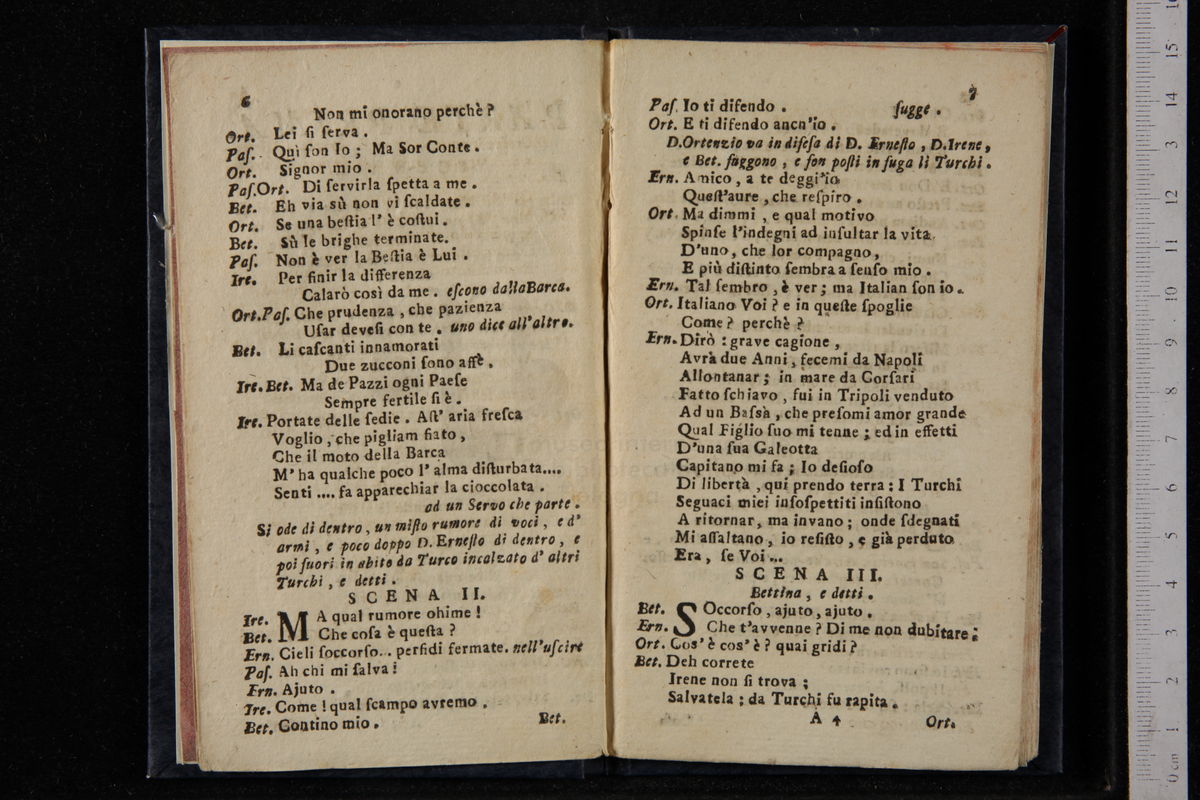 6
Non mi onorano perchè?
Ort. Lei ſi ſerva.
Paſ. Quì ſon Io; Ma Sor Conte.
Ort. Signor mio.
Paſ.Ort. Di ſervirla ſpetta a me.
Bet. Eh via sù non vi ſcaldate.
Ort. Se una beſtia l' è coſtui.
Bet. Sù le brighe terminate.
Paſ. Non è ver la Beſtia è Lui.
Ire. Per finir la differenza
Calarò così da me. eſcono dallaBarca.
Ort.Paſ. Che prudenza, che pazienza
Uſar deveſi con te. uno dice all'altro.
Bet. Li caſcanti innamorati
Due zucconi ſono affè.
Ire.Bet. Ma de Pazzi ogni Paeſe
Sempre fertile ſi è.
Ire. Portate delle ſedie. Aſt' aria freſca
Voglio, che pigliam fiato,
Che il moto della Barca
M' ha qualche poco l' alma diſturbata....
Senti .... fa apparechiar la cioccolata.
ad un Servo che parte.
Si ode di dentro, un miſto rumore di voci, e d'
armi, e poco doppo D. Erneſto di dentro, e
poi fuori in abito da Turco incalzato d' altri
Turchi, e detti.
SCENA II.
Ire. MA qual rumore ohime!
Bet. Che coſa è queſta?
Ern. Cieli ſoccorſo.. perfidi fermate. nell'uſcire
Paſ. Ah chi mi ſalva!
Ern. Ajuto.
Ire. Come! qual ſcampo avremo.
Bet. Contino mio.
Bet.
7
Paſ. Io ti difendo. fugge.
Ort. E ti difendo anch'io.
D.Ortenzio va in difeſa di D. Erneſto, D.Irene,
e Bet. fuggono, e ſon poſti in fuga li Turchi.
Ern. Amico, a te deggi'io
Queſt'aure, che reſpiro.
Ort. Ma dimmi, e qual motivo
Spinſe l'indegni ad inſultar la vita
D'uno, che lor compagno,
E più diſtinto ſembra a ſenſo mio.
Ern. Tal ſembro, è ver; ma Italian ſon io.
Ort. Italiano Voi? e in queſte ſpoglie
Come? perchè?
Ern. Dirò: grave cagione,
Avrà due Anni, fecemi da Napoli
Allontanar; in mare da Corſari
Fatto ſchiavo, fui in Tripoli venduto
Ad un Baſsà, che preſomi amor grande
Qual Figlio ſuo mi tenne; ed in effetti
D'una ſua Galeotta
Capitano mi fa; Io deſioſo
Di libertà, qui prendo terra: I Turchi
Seguaci miei inſoſpettiti inſiſtono
A ritornar, ma invano; onde ſdegnati
Mi aſſaltano, io reſiſto, e già perduto
Era, ſe Voi...
SCENA III.
Bettina, e detti.
Bet. SOccorſo, ajuto, ajuto.
Ern. Che t'avvenne? Di me non dubitare;
Ort. Cos' è cos' è? quai gridi?
Bet. Deh correte
Irene non ſi trova;
Salvatela; da Turchi fu rapita.
A 4
Ort.
0 cm 1 2 3 4 5 6 7 8 9 10 11 12 13 14 15